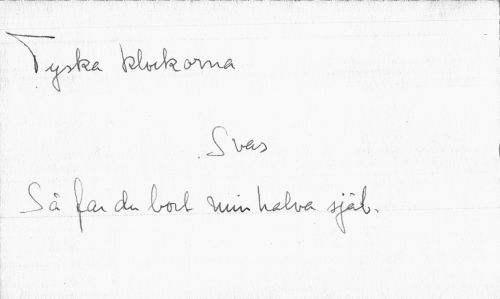 Tyska klockorna
Svar
Så far du bort min halva själ.